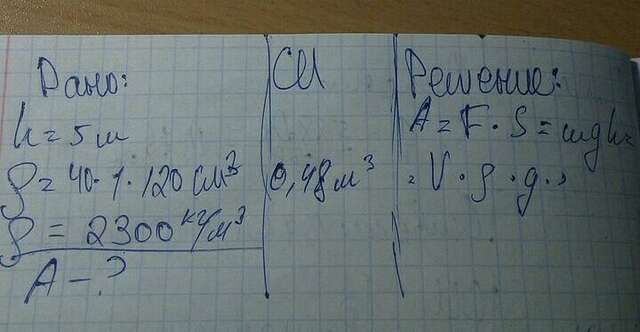 Дано:
h = 5 м
ρ = 40·1·120 см³
ρ = 2300 кг/м³
A - ?
СИ
0,48 м³
Решение:
A = F · S = mgh =
= V · ρ · g ·